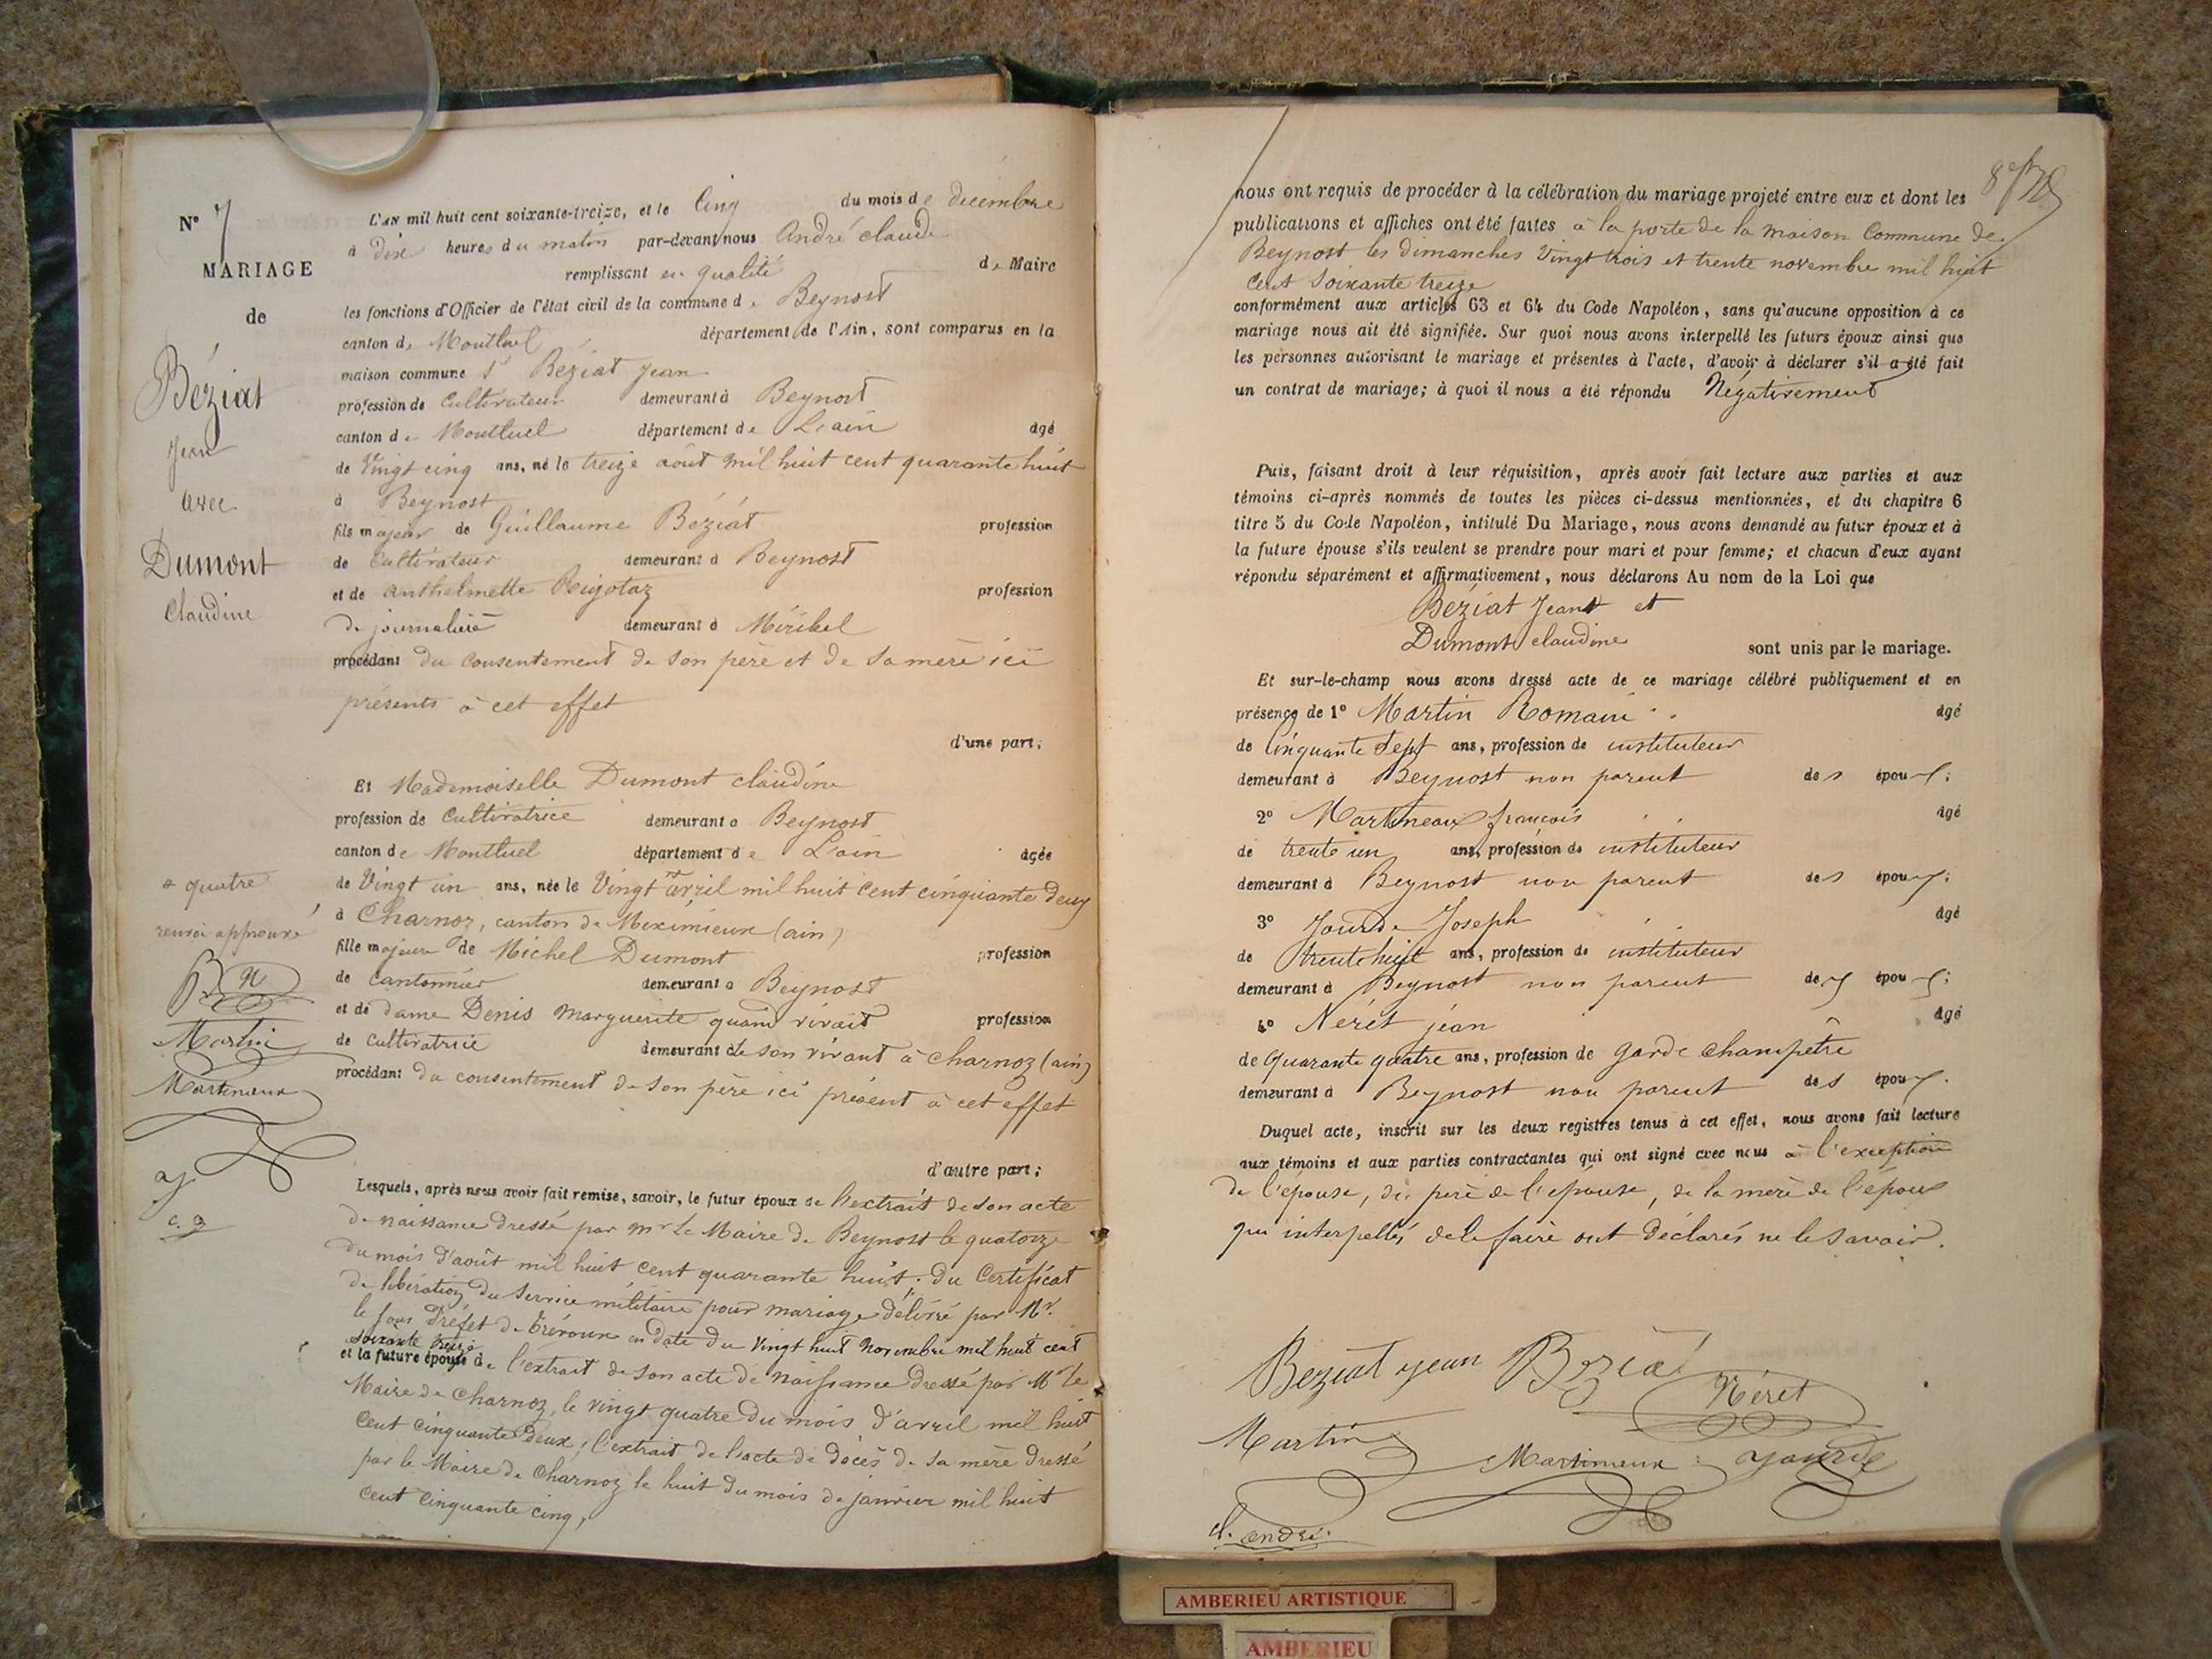 N° 7
MARIAGE
de
Béziat
Jean
avec
Dumont
Claudine
L'AN mil huit cent soixante-treize, et le Cinq du mois de décembre
à dix heures du matin par-devant nous André claude
remplissant en qualité de Maire
les fonctions d'Officier de l'état civil de la commune de Beynost
canton de Montluel département de l'Ain, sont comparus en la
maison commune Sr Béziat Jean
profession de Cultivateur demeurant à Beynost
canton de Montluel département de L'ain âgé
de Vingt cinq ans, né le treize août mil huit cent quarante huit
à Beynost
fils majeur de Guillaume Béziat profession
de Cultivateur demeurant à Beynost
et de anthelmette Rigotaz profession
de journalière demeurant à Miribel
procédant du consentement de son père et de sa mère ici
présents à cet effet
d'une part;
Et Mademoiselle Dumont claudine
profession de Cultivatrice demeurant à Beynost
canton de Montluel département de L'ain âgée
de Vingt un ans, née le Vingt avril mil huit cent cinquante deux
à Charnoz, canton de Meximieux (ain)
fille majeure de Michel Dumont profession
de cantonnier demeurant à Beynost
et de dame Denis Marguerite quand vivait profession
de cultivatrice demeurant de son vivant à Charnoz (ain)
procédant du consentement de son père ici présent à cet effet
d'autre part;
Lesquels, après nous avoir fait remise, savoir, le futur époux de l'extrait de son acte
de naissance dressé par mr Le Maire de Beynost le quatorze
du mois d'août mil huit cent quarante huit. du Certificat
de libération du Service militaire pour mariage délivré par Mr.
le Sous Préfet de Trévoux en date du vingt huit Novembre mil huit cent
soixante treize
et la future épouse de l'extrait de son acte de naissance dressé par Mr le
Maire de Charnoz, le vingt quatre du mois d'avril mil huit
cent cinquante deux; l'extrait de l'acte de décès de sa mère dressé
par le Maire de Charnoz le huit du mois de janvier mil huit
cent cinquante cinq,
quatre
renvoi approuvé
Martin
Martineaux
nous ont requis de procéder à la célébration du mariage projeté entre eux et dont les
publications et affiches ont été faites à la porte de la maison Commune de
Beynost les dimanches Vingt trois et trente novembre mil huit
Cent Soixante treize
conformément aux articles 63 et 64 du Code Napoléon, sans qu'aucune opposition à ce
mariage nous ait été signifiée. Sur quoi nous avons interpellé les futurs époux ainsi que
les personnes autorisant le mariage et présentes à l'acte, d'avoir à déclarer s'il a été fait
un contrat de mariage; à quoi il nous a été répondu Négativement
Puis, faisant droit à leur réquisition, après avoir fait lecture aux parties et aux
témoins ci-après nommés de toutes les pièces ci-dessus mentionnées, et du chapitre 6
titre 5 du Code Napoléon, intitulé Du Mariage, nous avons demandé au futur époux et à
la future épouse s'ils veulent se prendre pour mari et pour femme; et chacun d'eux ayant
répondu séparément et affirmativement, nous déclarons Au nom de la Loi que
Béziat Jean et
Dumont claudine
sont unis par le mariage.
Et sur-le-champ nous avons dressé acte de ce mariage célébré publiquement et en
présence de 1° Martin Romain âgé
de Cinquante Sept ans, profession de instituteur
demeurant à Beynost non parent des époux;
2° Martineaux françois âgé
de trente un ans, profession de instituteur
demeurant à Beynost non parent des époux;
3° Jourde Joseph âgé
de trente huit ans, profession de instituteur
demeurant à Beynost non parent des époux;
4° Néret jean âgé
de Quarante quatre ans, profession de garde champêtre
demeurant à Beynost non parent des époux.
Duquel acte, inscrit sur les deux registres tenus à cet effet, nous avons fait lecture
aux témoins et aux parties contractantes qui ont signé avec nous à l'exception
de l'épouse, du père de l'épouse, de la mère de l'époux
qui interpellés de le faire ont déclarés ne le savoir.
Beziat jean
Néret
Martin
Martineaux
Jourde
cl. andré.
AMBERIEU ARTISTIQUE
AMBERIEU